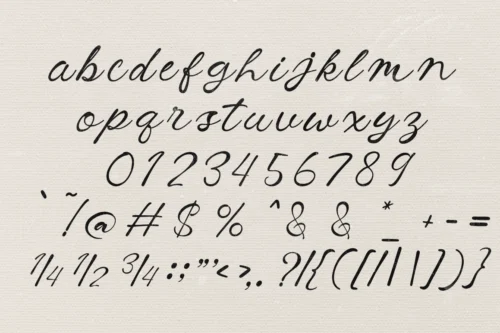 abcdefghijklmn
opqrstuvwxyz
0123456789
`~!@#$%^&&*_+-=
¼½¾:;"'<>,.?/{([/|\])}